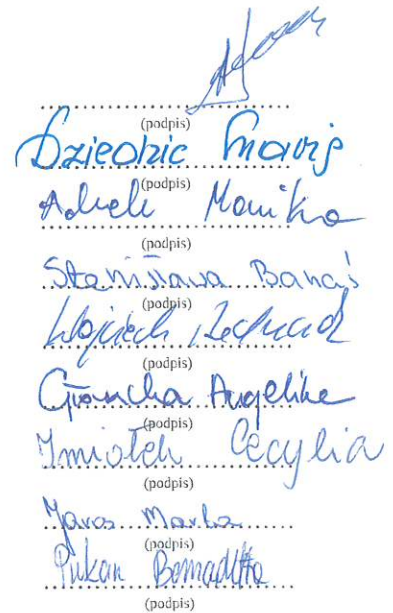 (podpis)
Dziedzic Maria
(podpis)
Monika
(podpis)
Stanisława Banaś
(podpis)
Wojciech
(podpis)
Angelika
(podpis)
Imiołek Cecylia
(podpis)
Jaros Marta
(podpis)
Pukan Bernadetta
(podpis)